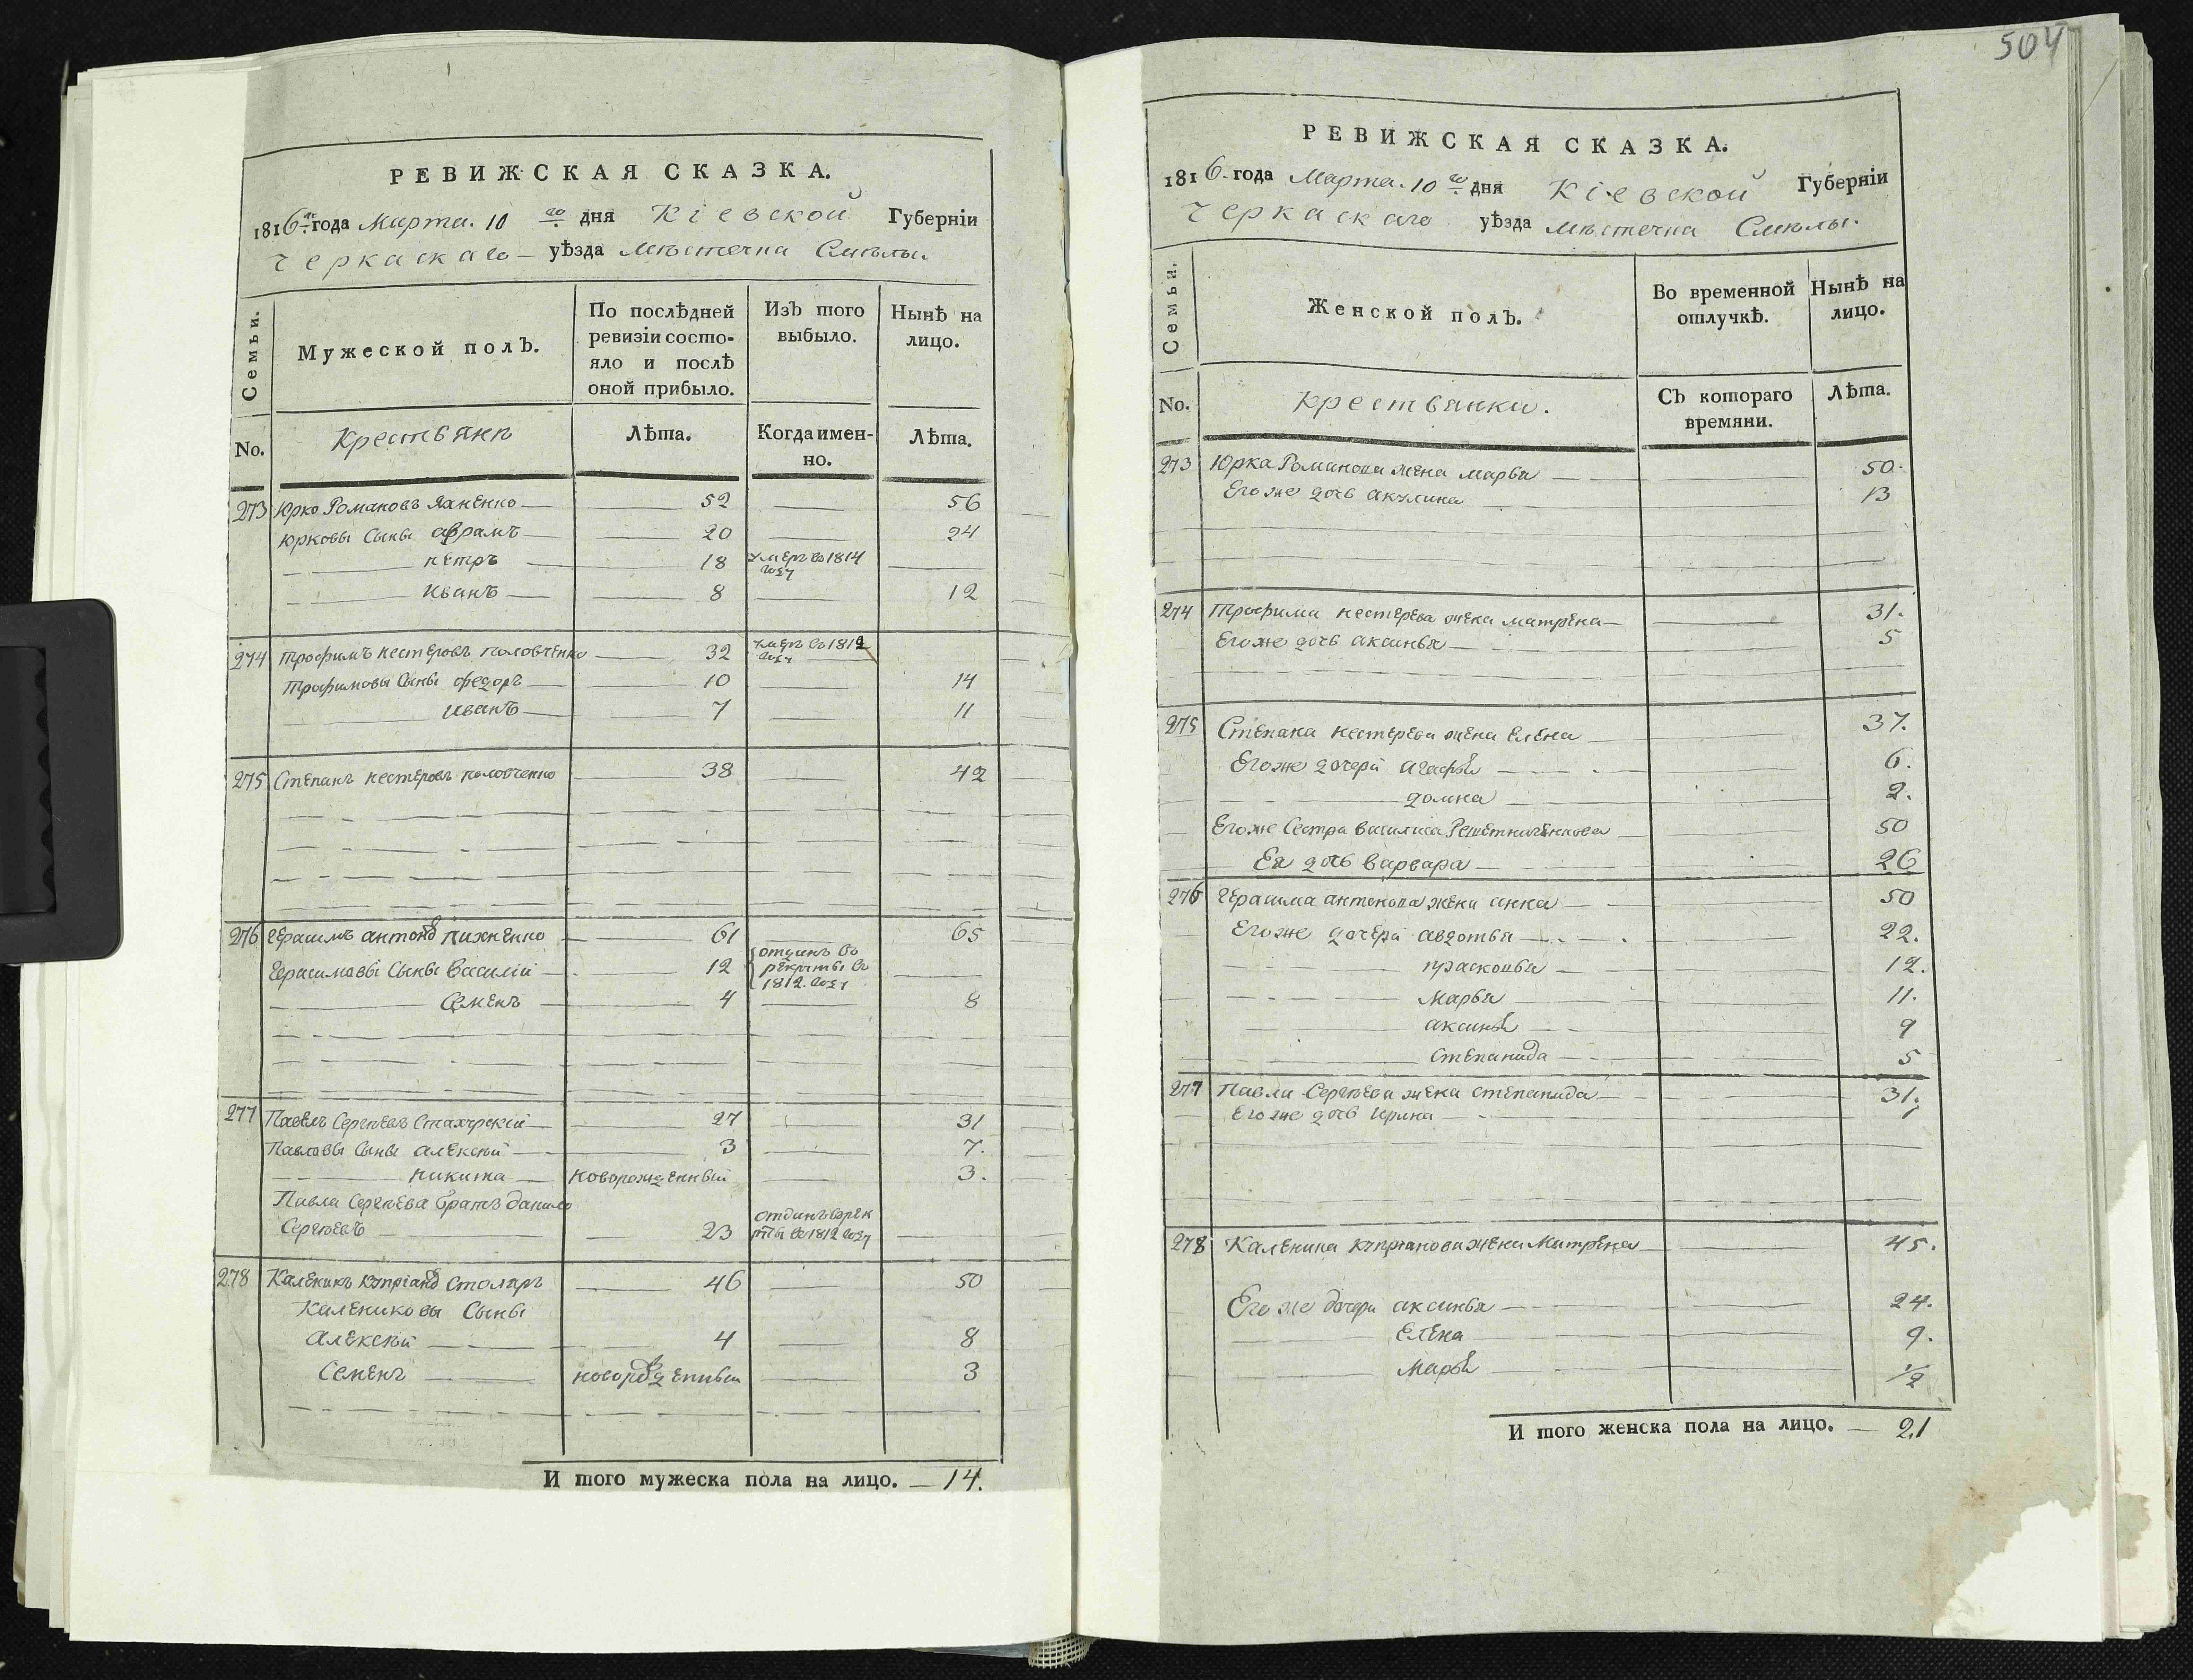 РЕВИЖСКАЯ СКАЗКА.
1816го года Марта. 10 го дня Кіевской Губерніи
Черкаскаго уѣзда Мѣстечка Смѣлы.
Семьи.
Мужеской полъ.
По послѣдней
ревизіи состо-
яло и послѣ
оной прибыло.
Изъ того
выбыло.
Нынѣ на
лицо.
No.
Крестьянъ
Лѣта.
Когда имен-
но.
Лѣта.
273 Юрко Романовъ Яхненко 52 56
Юрковы Сыны Аврамъ 20 24
Петръ 18 умеръ въ 1814 году
Иванъ 8 12
274 Трофимъ Нестеровъ Половченко 32 умеръ въ 1812 году
Трофимовы Сыны Федоръ 10 14
Иванъ 7 11
275 Степанъ Нестеровъ Половченко 38 42
276 Герасимъ Антоновъ 61 65
Герасимовы Сыны Василій 12 отданъ въ рекруты въ 1812. году
Семенъ 4 8
277 Павелъ Сергѣевъ 27 31
Павловы Сыны Алексѣй 3 7.
Никита новорожденный 3.
Павла Сергѣева братъ Данило
Сергѣевъ 23 отданъ въ рекруты въ 1812 году
278 Каленикъ Купріановъ Столяръ 46 50
Калениковы Сыны
Алексѣй 4 8
Семенъ новорожденный 3
И того мужеска пола на лицо. — 14.
504
РЕВИЖСКАЯ СКАЗКА.
1816. года Марта. 10 го дня Кіевской Губерніи
Черкаскаго уѣзда Мѣстечка Смѣлы.
Семьи.
Женской полъ.
Во временной
отлучкѣ.
Нынѣ на
лицо.
No.
Крестьянки.
Съ котораго
времяни.
Лѣта.
273 Юрка Романова жена Марья 50.
Его же дочь Акулина 13
274 Трофима Нестерева жена Матрена 31.
Его же дочь Аксинья 5
275 Степана Нестерева жена Елена 37.
Его же дочери Агафья 6.
Домна 2.
Его же Сестра Василиса Решетниченкова 50
Ея дочь Варвара 26
276 Герасима Антонова жена Анна 50
Его же дочери Авдотья 22.
Прасковья 12.
Марья 11.
Аксинья 9
Степанида 5
277 Павла Сергѣева жена Степанида 31.
Его же дочь Ирина 1
278 Каленика Купріанова жена Матрена 45.
Его же дочери Аксинья 24.
Елена 9.
Марья 1/2
И того женска пола на лицо. — 21